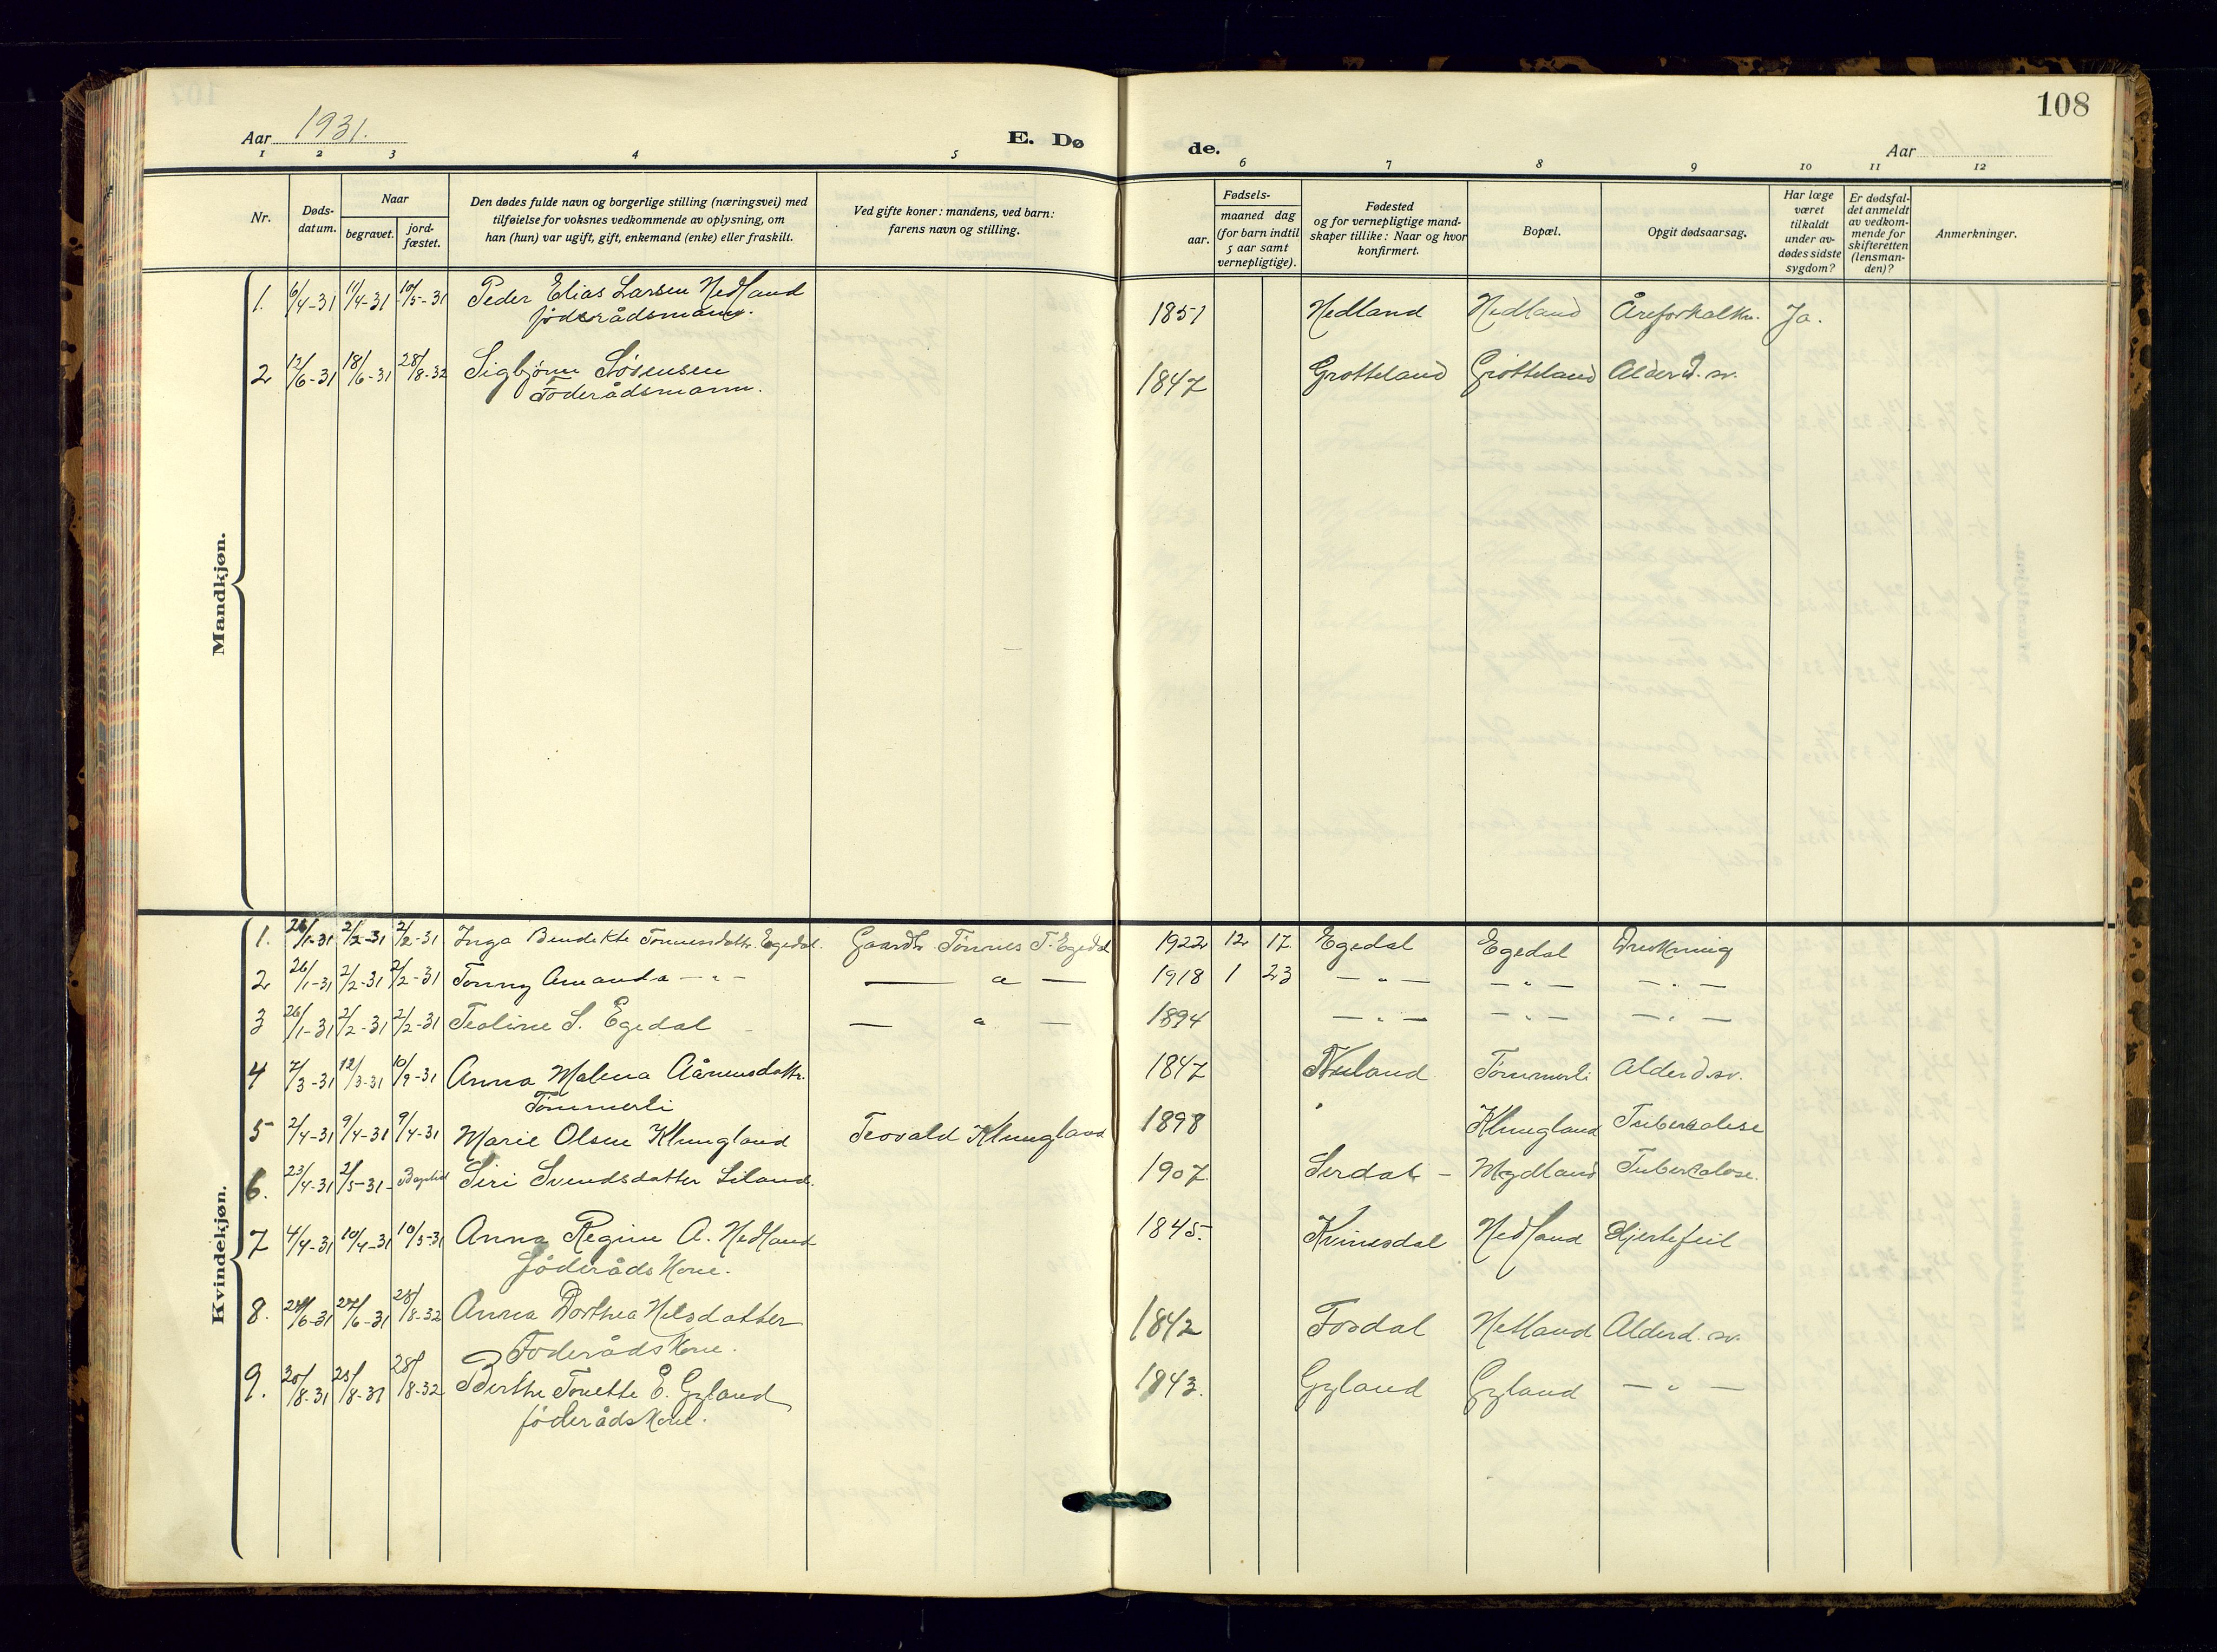 108
Aar 1931.
E. Dø
de.
Aar
1 2 3 4 5 6 7 8 9 10 11 12
Nr.
Døds-
datum.
Naar
begravet.
jord-
fæstet.
Den dødes fulde navn og borgerlige stilling (næringsvei) med
tilføielse for voksnes vedkommende av oplysning, om
han (hun) var ugift, gift, enkemand (enke) eller fraskilt.
Ved gifte koner: mandens, ved barn:
farens navn og stilling.
Fødsels-
aar.
maaned dag
(for barn indtil
5 aar samt
vernepligtige).
Fødested
og for vernepligtige mand-
skaper tillike: Naar og hvor
konfirmert.
Bopæl.
Opgit dødsaarsag.
Har læge
været
tilkaldt
under av-
dødes sidste
sygdom?
Er dødsfal-
det anmeldt
av vedkom-
mende for
skifteretten
(lensman-
den)?
Anmerkninger.
Mandkjøn.
1. 6/4-31 11/4-31 10/5-31 Peder Elias Larsen Nedland 1851 Nedland Nedland Åreforkalkn. Ja.
föderådsmann.
2 12/6-31 18/6-31 28/8-32 Sigbjørn Sørensen 1847 Grøtteland Grøtteland Alderd.sv.
Föderådsmann.
Kvindekjøn.
1. 26/1-31 2/2-31 2/2-31 Inga Bendikte Tönnesdattr. Egedal. Gaardbr. Tönnes T. Egedal 1922 12 17. Egedal Egedal Drukning
2 26/1-31 2/2-31 2/2-31 Tonny Amanda — " — — " — 1918 1 23 — " — — " — — " —
3 26/1-31 2/2-31 2/2-31 Teoline S. Egedal — " — 1894 — " — — " — — " —
4 7/3-31 12/3-31 10/9-31 Anna Malena Aånensdattr. 1847 Nuland Tömmerli Alderd.sv.
Tömmerli
5 2/4-31 9/4-31 9/4-31 Marie Olsen Klungland Teovald Klungland 1898 " Klungland Tuberkolose
6. 23/4-31 2/5-31 Siri Svendsdatter Liland. 1907 Serdal — Mydland Tuberkolose.
7 4/4-31 10/4-31 10/5-31 Anna Regine A. Nedland 1845. Kvinesdal Nedland Hjertefeil
föderådskone.
8. 24/6-31 27/6-31 28/8-32 Anna Dorthea Nilsdatter 1842 Fosdal Netland Alderd.sv.
Föderådskone.
9. 20/8-31 25/8-31 28/8-32 Berthe Tonette E. Gyland 1843. Gyland Gyland — " —
föderådskone.